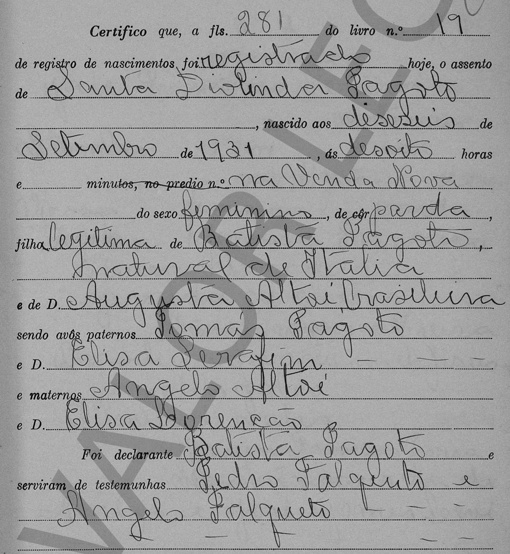 Certifico que, a fls. 281 do livro n.º 19
de registro de nascimentos foi registrado hoje, o assento
de Santa Diolinda Pagoto
, nascido aos deseseis de
Setembro de 1931, ás desoito horas
e minutos, no predio n.º na Venda Nova
do sexo feminino, de côr parda,
filha legitima de Batista Pagoto,
natural de Italia
e de D. Augusta Altoé, brasileira
sendo avós paternos Tomas Pagoto
e D. Elisa Serafim
e maternos Angelo Altoé
e D. Elisa Lorenção
Foi declarante Batista Pagoto e
serviram de testemunhas Pedro Falqueto e
Angelo Falqueto
VALOR LEG